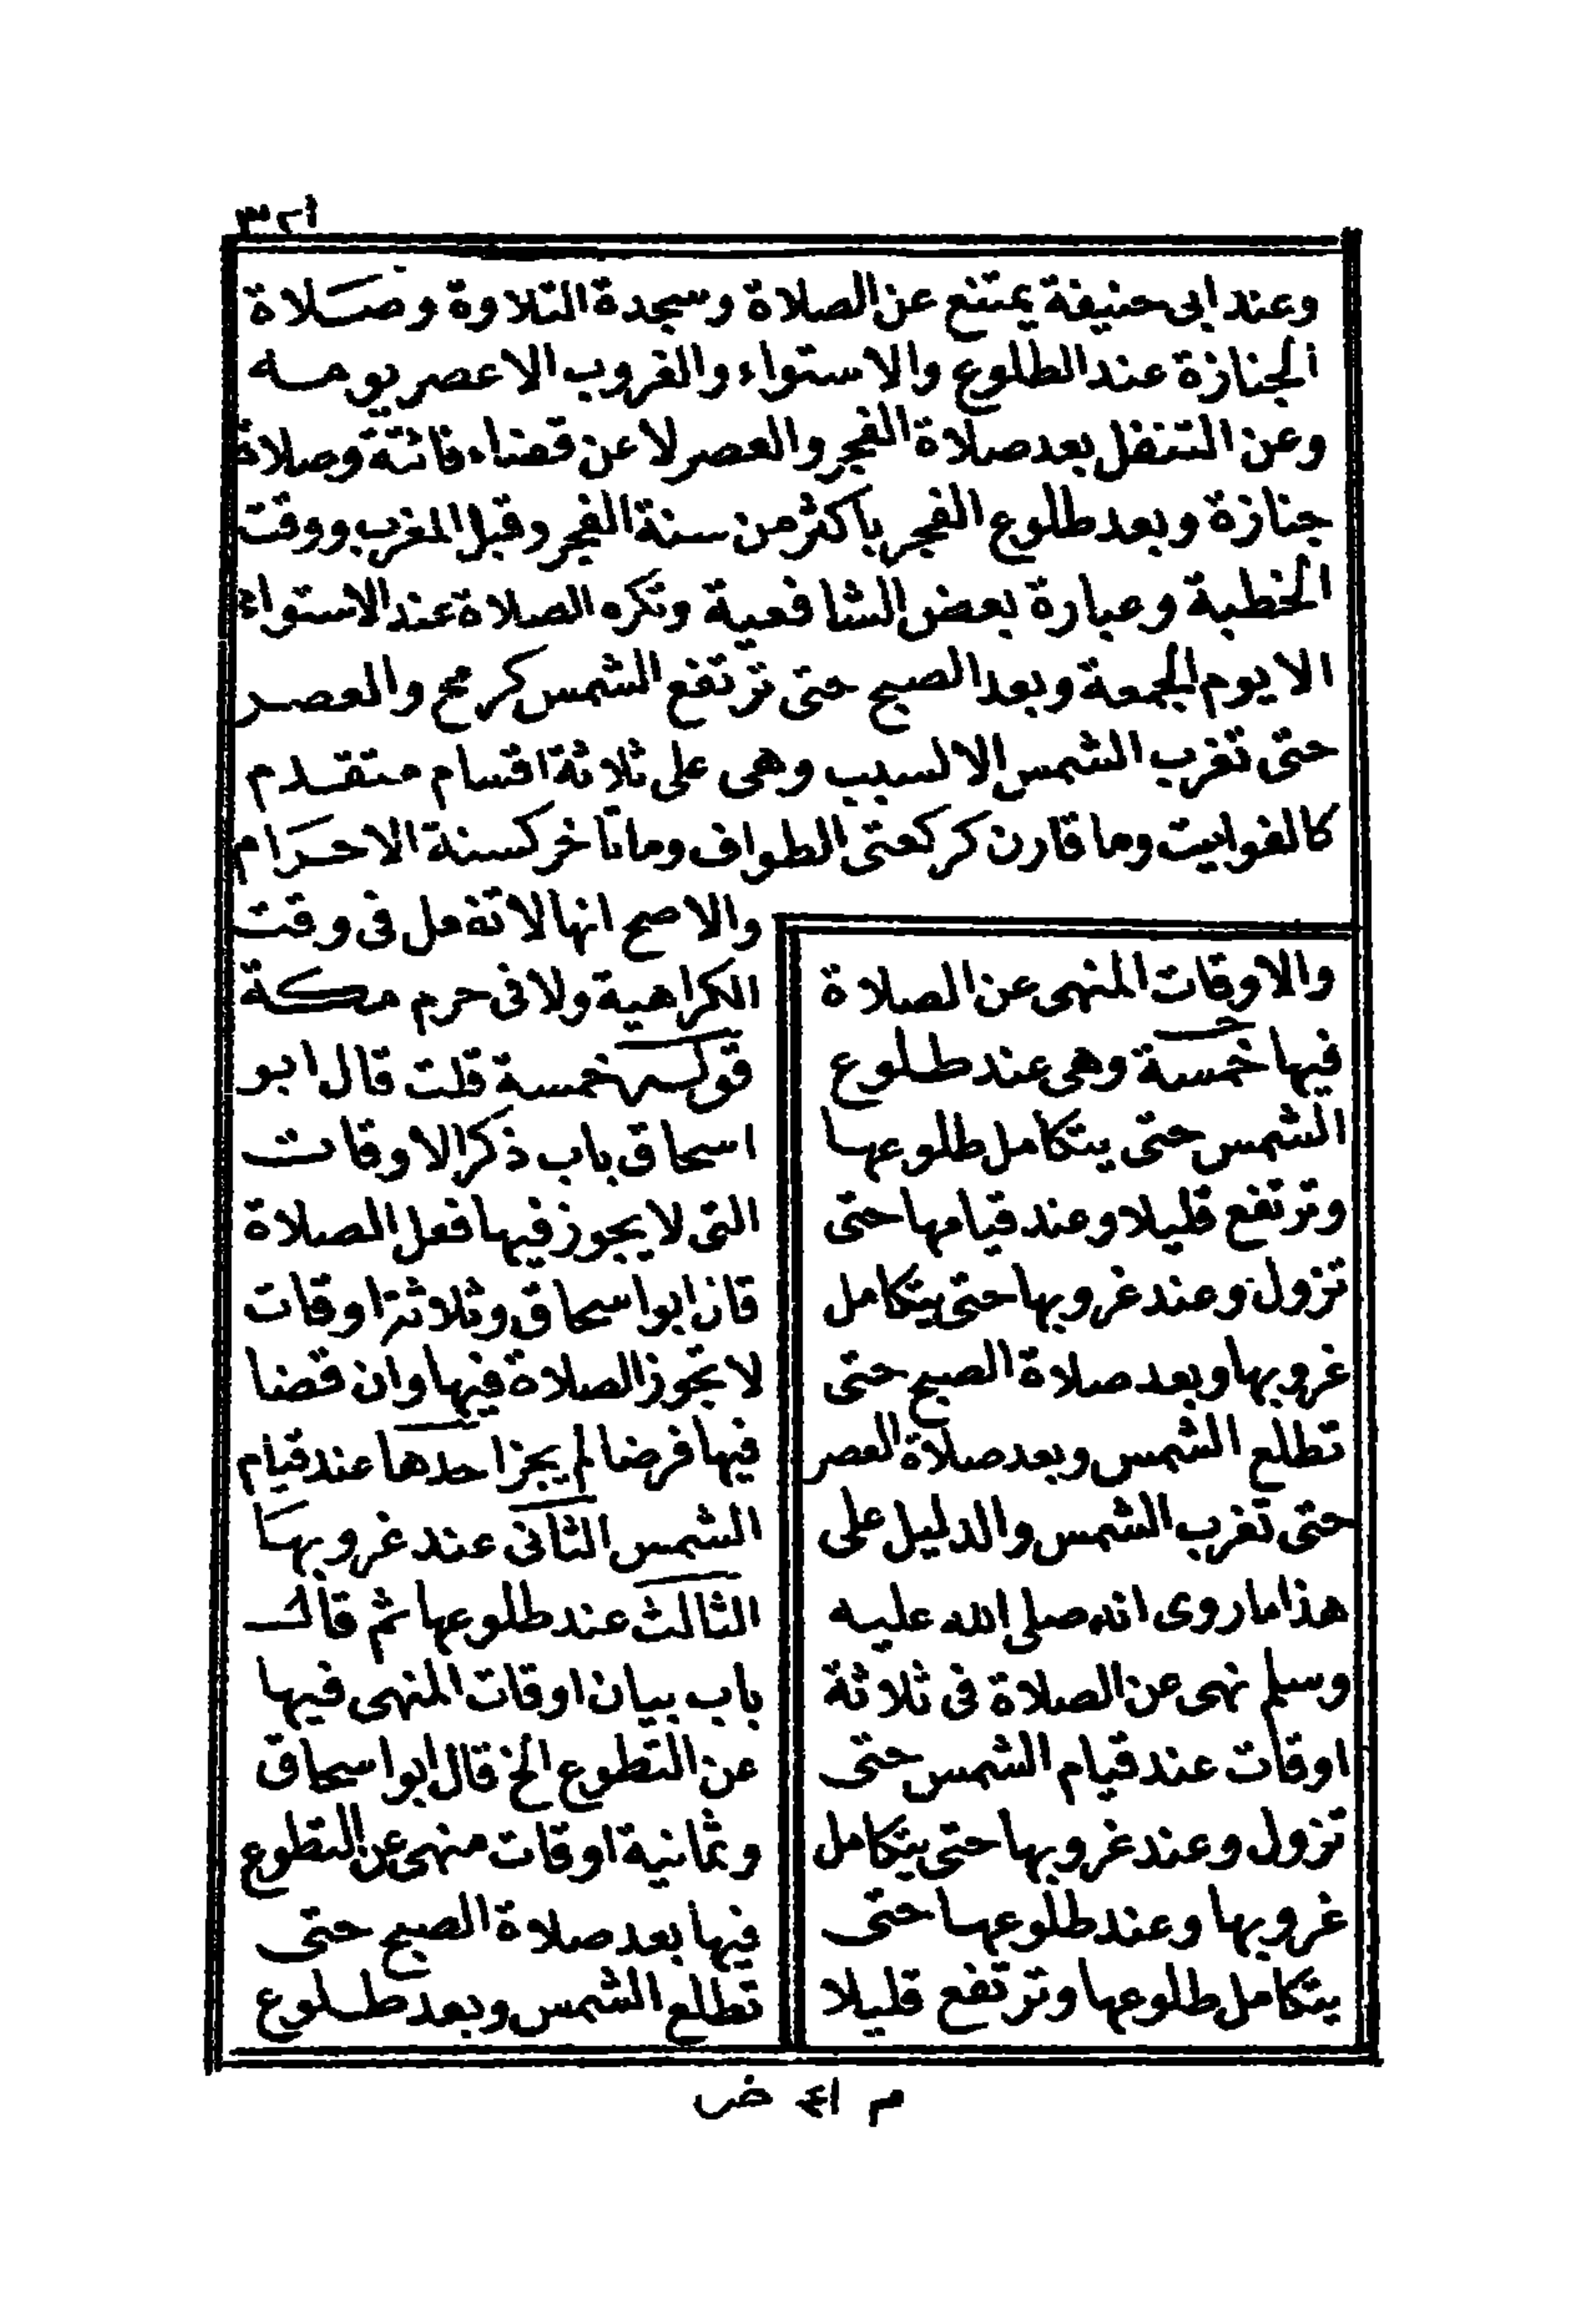 وعند ابى حنيفة يمتنع عن الصلاة وسجدة التلاوة وصلاة
الجنازة عند الطلوع والاستواء والغروب الا عصر يومه
وعن التنفل بعد صلاة الفجر والعصر لا عن قضاء فائتة وصلاة
جنازة وبعد طلوع الفجر باكثر من سنة الفجر وقبل المغرب ووقت
الخطبة وعبارة بعض الشافعية وتكره الصلاة عند الاستواء
الا يوم الجمعة وبعد الصبح حتى ترتفع الشمس كرمح والعصر
حتى تغرب الشمس الا لسبب وهى على ثلاثة اقسام متقدم
كالفوايت وما قارن كركعتى الطواف وما تأخر كسنة الاحرام
والاصح انها لا تفعل فى وقت
الكراهية ولا فى حرم مكة
قوله خمسة قلت قال ابو
اسحاق باب ذكر الاوقات
التى لا يجوز فيها فعل الصلاة
قان ابو اسحاق وثلاثة اوقات
لا تجوز الصلاة فيها وان قضا
فيها فرضا لم يجز احدها عند قيام
الشمس الثانى عند غروبها
الثالث عند طلوعها ثم قال
باب بيان اوقات المنهى فيها
عن التطوع الخ قال ابو اسحاق
وثمانية اوقات منهى عن التطوع
فيها بعد صلاة الصبح حتى
تطلع الشمس وبعد طلوع
والاوقات المنهى عن الصلاة
فيها خمسة وهى عند طلوع
الشمس حتى يتكامل طلوعها
وترتفع قليلا وعند قيامها حتى
تزول وعند غروبها حتى يتكامل
غروبها وبعد صلاة الصبح حتى
تطلع الشمس وبعد صلاة العصر
حتى تغرب الشمس والدليل على
هذا ما روى انه صلى الله عليه
وسلم نهى عن الصلاة فى ثلاثة
اوقات عند قيام الشمس حتى
تزول وعند غروبها حتى يتكامل
غروبها وعند طلوعها حتى
يتكامل طلوعها وترتفع قليلا